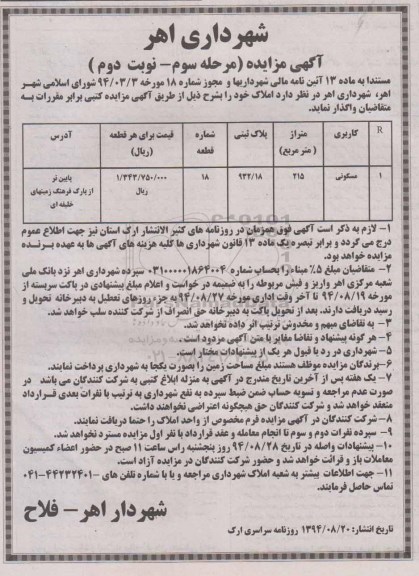 شهرداری اهر
آگهی مزایده (مرحله سوم- نوبت دوم )
مستندا به ماده ۱۳ آئین نامه مالی شهرداریها و مجوز شماره ۱۸ مورخه ۹۴/۰۳/۳ شورای اسلامی شهر
اهر، شهرداری اهر در نظر دارد املاک خود را بشرح ذیل از طریق آگهی مزایده کتبی برابر مقررات به
متقاضیان واگذار نماید.
R کاربری متراژ ( متر مربع) پلاک ثبتی شماره قطعه قیمت برای هر قطعه (ریال) آدرس
۱ مسکونی ۲۱۵ ۹۳۲/۱۸ ۱۸ ۱/۳۴۳/۷۵۰/۰۰۰ ریال پایین تر از پارک فرهنگ زمینهای خلیفه ای
۱- لازم به ذکر است آگهی فوق همزمان در روزنامه های کثیر الانتشار ارک استان نیز جهت اطلاع عموم
درج می گردد و برابر تبصره یک ماده ۱۳ قانون شهرداری ها کلیه هزینه های آگهی ها به عهده برنده
مزایده خواهد بود.
۲- متقاضیان مبلغ ۵٪ مبنا را بحساب شماره ۰۳۱۰۰۰۰۰۱۸۶۴۰۰۴ سپرده شهرداری اهر نزد بانک ملی
شعبه مرکزی اهر واریز و فیش مربوطه را به ضمیمه در خواست و اعلام مبلغ پیشنهادی در پاکت سربسته از
مورخه ۹۴/۰۸/۱۹ تا آخر وقت اداری مورخه ۹۴/۰۸/۲۷ به جزء روزهای تعطیل به دبیرخانه تحویل و
رسید دریافت دارند. بعد از تحویل پاکت به دبیرخانه حق انصراف از شرکت کننده سلب خواهد شد.
۳- به تقاضای مبهم و مخدوش ترتیب اثر داده نخواهد شد.
۴- هر گونه پیشنهاد و تقاضا مغایر با متن آگهی مزدود است.
۵- شهرداری در رد یا قبول هر یک از پیشنهادات مختار است.
۶- برندگان مزایده موظف هستند مبلغ مساحت زمین را بصورت یکجا به شهرداری پرداخت نمایند.
۷- یک هفته پس از آخرین تاریخ مندرج در آگهی به منزله ابلاغ کتبی به شرکت کنندگان می باشد در
صورت عدم مراجعه و تسویه حساب ضمن ضبط سپرده به نفع شهرداری به ترتیب با نفرات بعدی قرارداد
منعقد خواهد شد و شرکت کنندگان حق هیچگونه اعتراضی نخواهند داشت.
۸- شرکت کنندگان در آگهی مزایده فرم مخصوص از واحد املاک را حتما دریافت نمایند.
۹- سپرده نفرات دوم و سوم تا انجام معامله و عقد قرارداد با نفر اول مزایده مسترد نخواهد شد.
۱۰- پیشنهادات واصله در تاریخ ۹۴/۰۸/۲۸ روز پنجشنبه راس ساعت ۱۱ صبح در حضور اعضاء کمیسیون
معاملات باز و قرائت خواهد شد و حضور شرکت کنندگان در مزایده آزاد است.
۱۱- جهت اطلاعات بیشتر به شعبه املاک شهرداری مراجعه و یا با شماره تلفن های ۴۴۲۳۲۴۰۱-۰۴۱
تماس حاصل فرمایند.
شهردار اهر- فلاح
تاریخ انتشار: ۱۳۹۴/۰۸/۲۰ روزنامه سراسری ارک